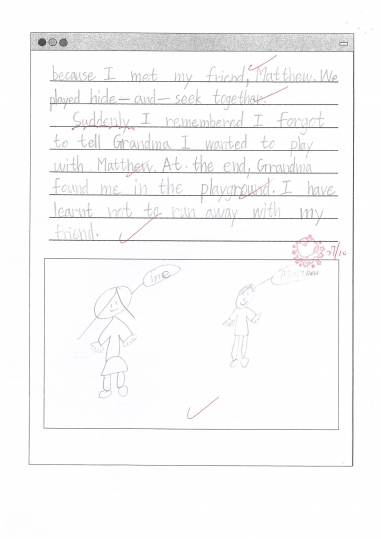 because I met my friend, Matthew. We
played hide-and-seek together.
Suddenly, I remembered I forgot
to tell Grandma I wanted to play
with Matthew. At the end, Grandma
found me in the playground. I have
learnt not to run away with my
friend.
me
Matthew